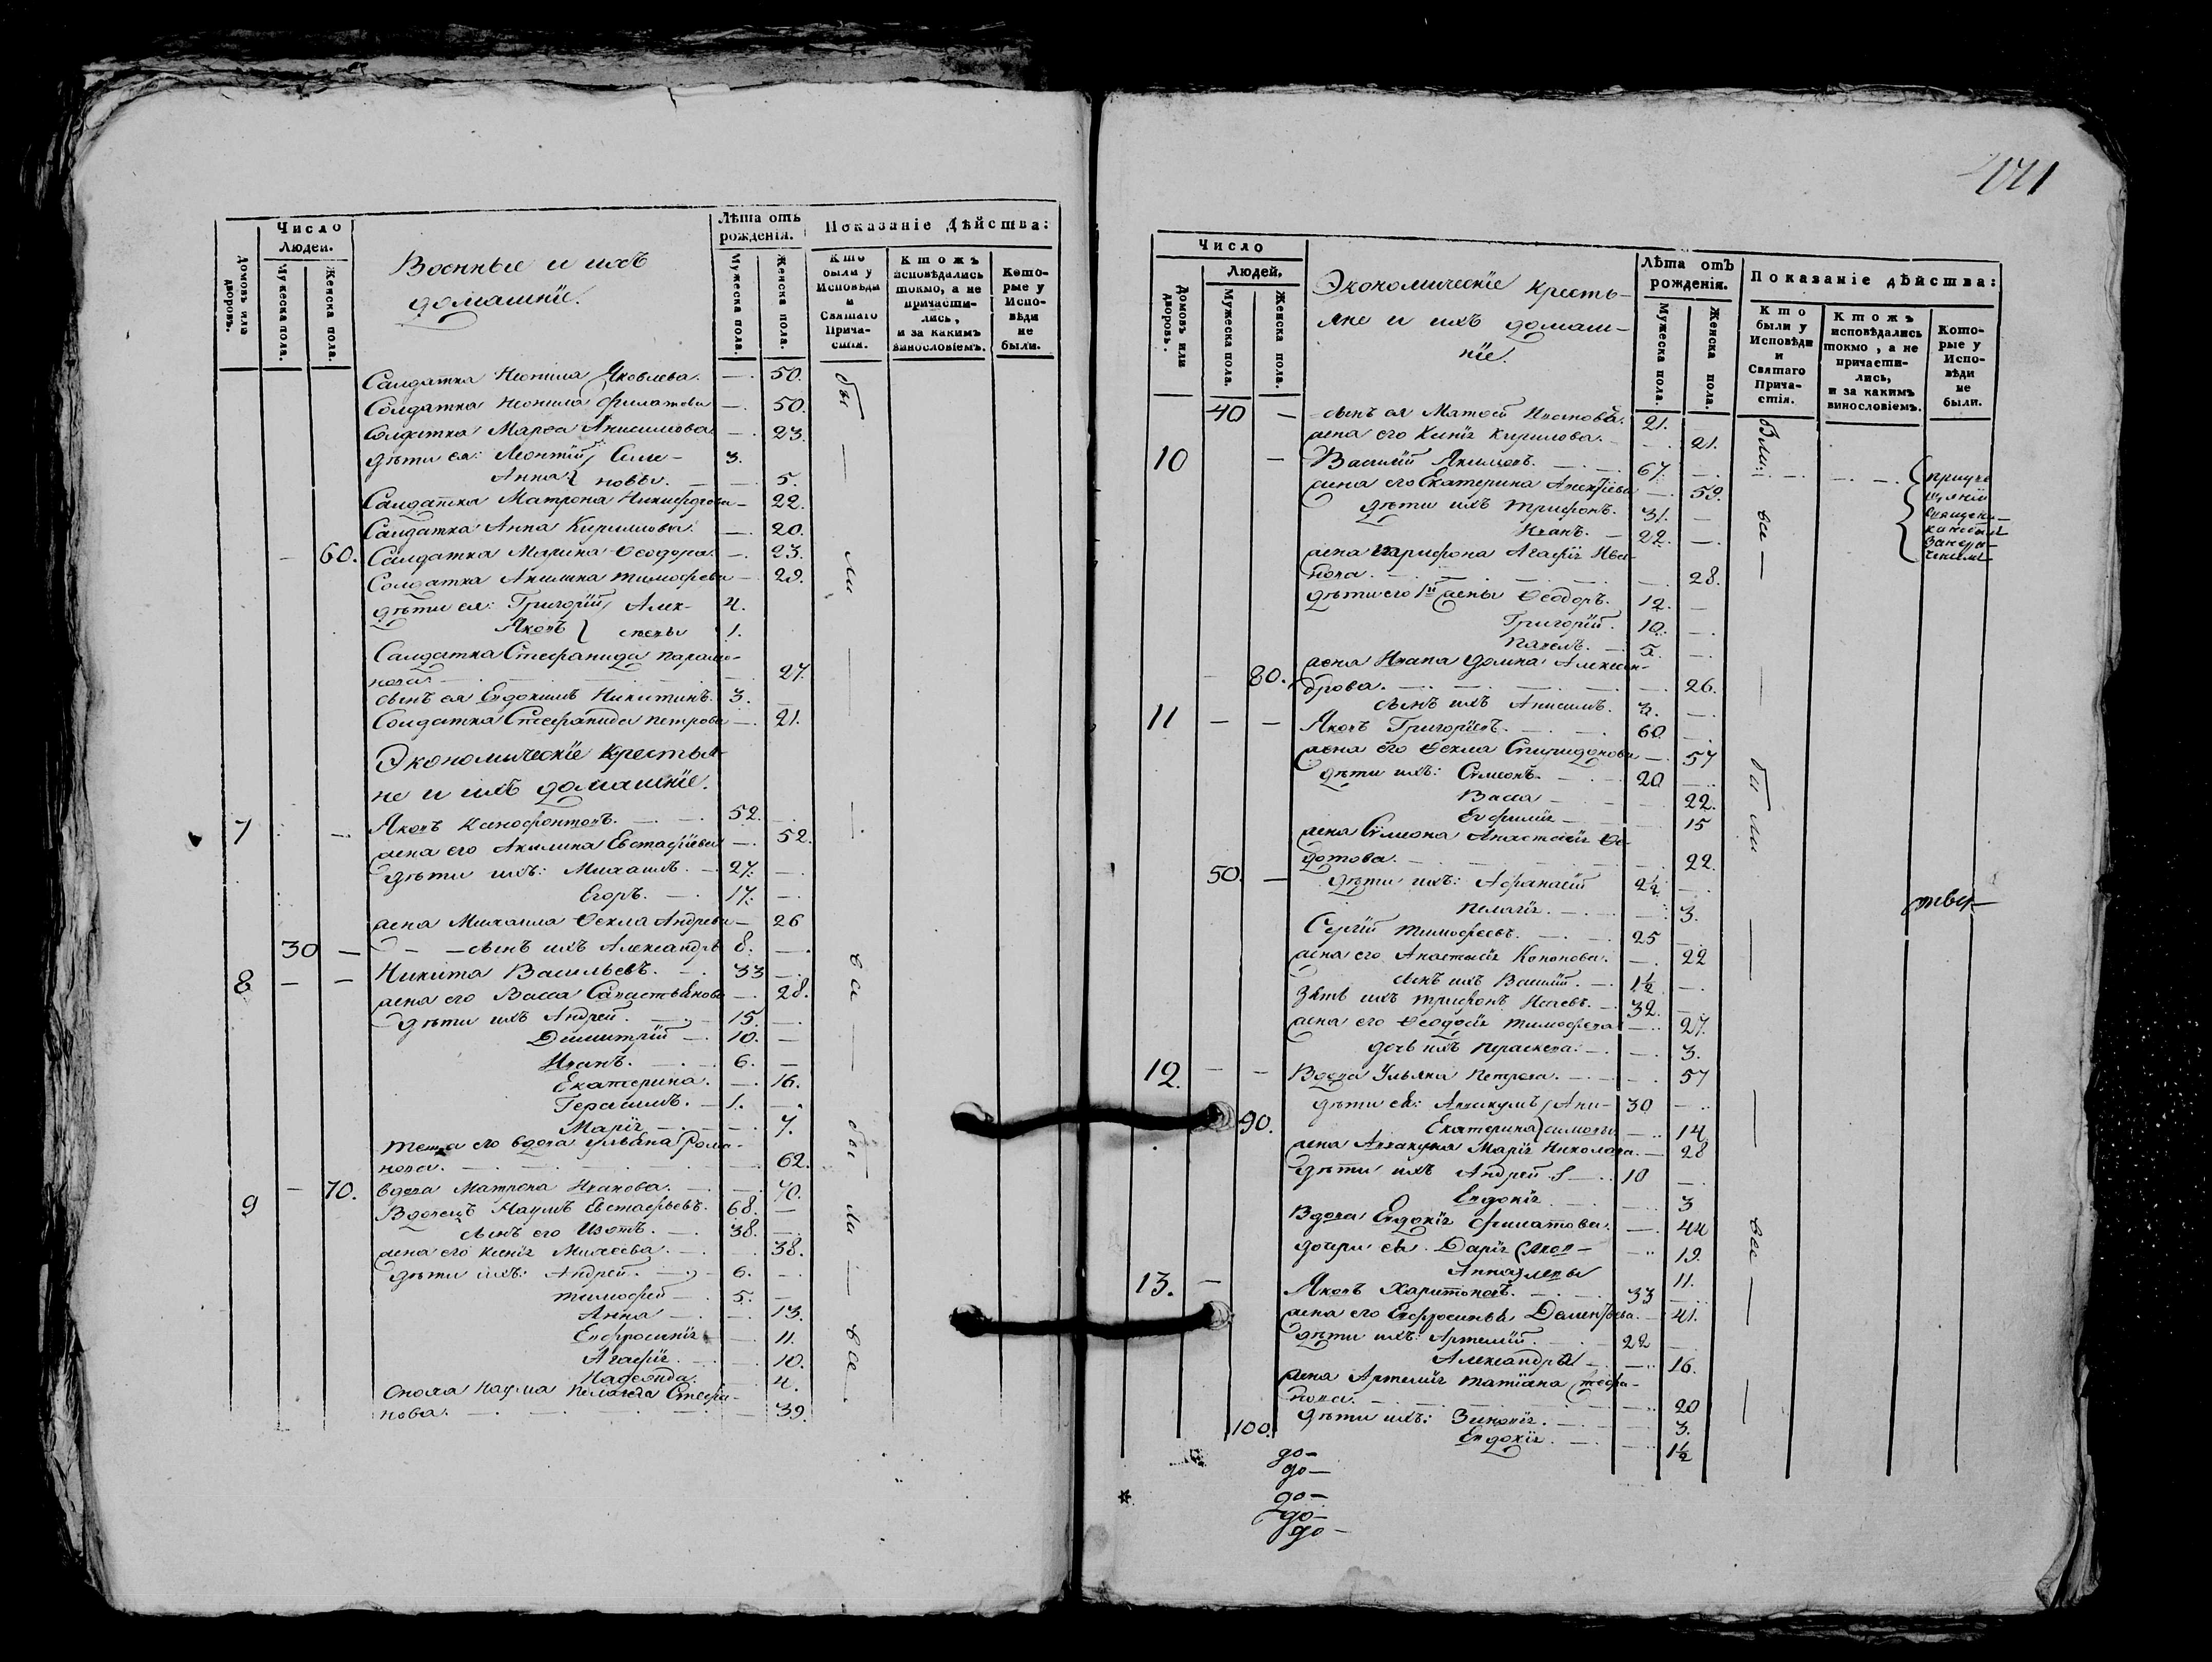 Число Людей.
Домовъ или дворовъ.
Мужеска пола.
Женска пола.
Военные и ихъ
домашніе.
Лѣта отъ рожденія.
Мужеска пола.
Женска пола.
Показаніе дѣйства:
Кто были у Исповѣди и Святаго Прича-стія.
Ктожъ исповѣдались токмо, а не причасти-лись, и за какимъ винословіемъ.
Кото-рые у Испо-вѣди не были.
Солдатка Неонила Яковлева. — 50.
Солдатка Неонила Филатова — 50.
Солдатка Марѳа Анисимова — 23.
дѣти ея: Леонтій Симо- 3.
Анна новы. — 5.
Солдатка Матрона Никифорова — 22.
Солдатка Анна Кирилова — 20.
— 60. Солдатка Марина Ѳеодора. — 23.
Солдатка Акилина Тимофеева — 29.
дѣти ея: Григорій Алек- 4.
Яковъ сѣевы 1.
Солдатка Стефанида Парамо-
нова — 27.
сынъ ея Евдокимъ Никитинъ. 3.
Солдатка Стефанида Петрова — 21.
Экономическіе крестья-
не и ихъ домашніе.
7 — Яковъ Ксенофонтовъ. 52.
жена его Акилина Евстафіева — 52.
дѣти ихъ: Михаилъ. 27. —
Егоръ. 17. —
жена Михаила Ѳекла Андреева — 26
30 — сынъ ихъ Александръ 8. —
8 — — Никита Васильевъ. 33 —
жена его Васса Савастьянова — 28.
дѣти ихъ Андрей. 15. —
Димитрій 10. —
Иванъ. 6. —
Екатерина. — 16.
Герасимъ. 1. —
Марія — 7.
теща его вдова Ульяна Рома-
нова. — 62.
— 70. вдова Матрона Иванова. — 70.
9 Вдовецъ Наумъ Евстафьевъ. 68. —
сынъ его Изотъ. 38. —
жена его Ксенія Михеева. — 38.
дѣти ихъ: Андрей. 6. —
Тимофей 5. —
Анна — 13.
Евфросинія — 11.
Агафія. — 10.
Надежда. — 4.
Сноха Наума Пелагея Стефа-
нова. — 39.
бы — ли — — всѣ — бы — ли — всѣ
Число
Людей.
Домовъ или дворовъ.
Мужеска пола.
Женска пола.
Экономическіе кресть-
яне и ихъ домаш-
ніе.
Лѣта отъ рожденія.
Мужеска пола.
Женска пола.
Показаніе дѣйства:
Кто были у Исповѣди и Святаго Прича-стія.
Ктожъ исповѣдались токмо, а не причасти-лись, и за какимъ винословіемъ.
Кото-рые у Испо-вѣди не были.
40 — сынъ ея Матвей Ивановъ. 21.
жена его Ксенія Кирилова. — 21.
10 — Василій Акимовъ. 67. —
жена его Екатерина Алексѣева — 59.
дѣти ихъ Трифонъ. 31. —
Иванъ. 22. —
жена Трифона Агафія Ива-
нова. — 28.
дѣти его 1й жены Ѳеодоръ. 12. —
Григорій. 10. —
Павелъ. 5. —
жена Ивана Домна Алексан-
— 80. дрова. — 26.
сынъ ихъ Анисимъ. —
11 — — Яковъ Григорьевъ. 60. —
жена его Ѳекла Спиридонова — 57
дѣти ихъ: Симеонъ. 20 —
Васса — 22.
Евфимія — 15
жена Симеона Анастасія Ѳе-
дотова. — 22.
50. — дѣти ихъ: Афанасій 2½ —
Пелагія. — 3.
Сергій Тимофеевъ. 25 —
жена его Анастасія Кононова. — 22
сынъ ихъ Василій. 1½ —
Зять ихъ Трифонъ Исаевъ. 32. —
жена его Ѳеодосія Тимофеева — 27.
дочь ихъ Параскева. — 3.
12. — — Вдова Ульяна Петрова. — 57
дѣти ея: Аввакумъ Ани- 30 —
90. Екатерина симовы — 14.
жена Аввакума Марія Николаева. — 28
дѣти ихъ Андрей 10 —
Евдокія — 3
Вдова Евдокія Филатова. — 44
дочери ея. Дарія Яков- — 19.
Анна левы 11.
13. — Яковъ Харитоновъ. 33 —
жена его Евфросинья Дементьева. — 41.
дѣти ихъ: Артемій. 22 —
Александра — 16.
жена Артемія Татіана Стефа-
нова. — 20
100. дѣти ихъ: Зиновія. — 3.
Евдокія. — 1½
до—
до—
до—
до—
до—
Были: всѣ — были — всѣ